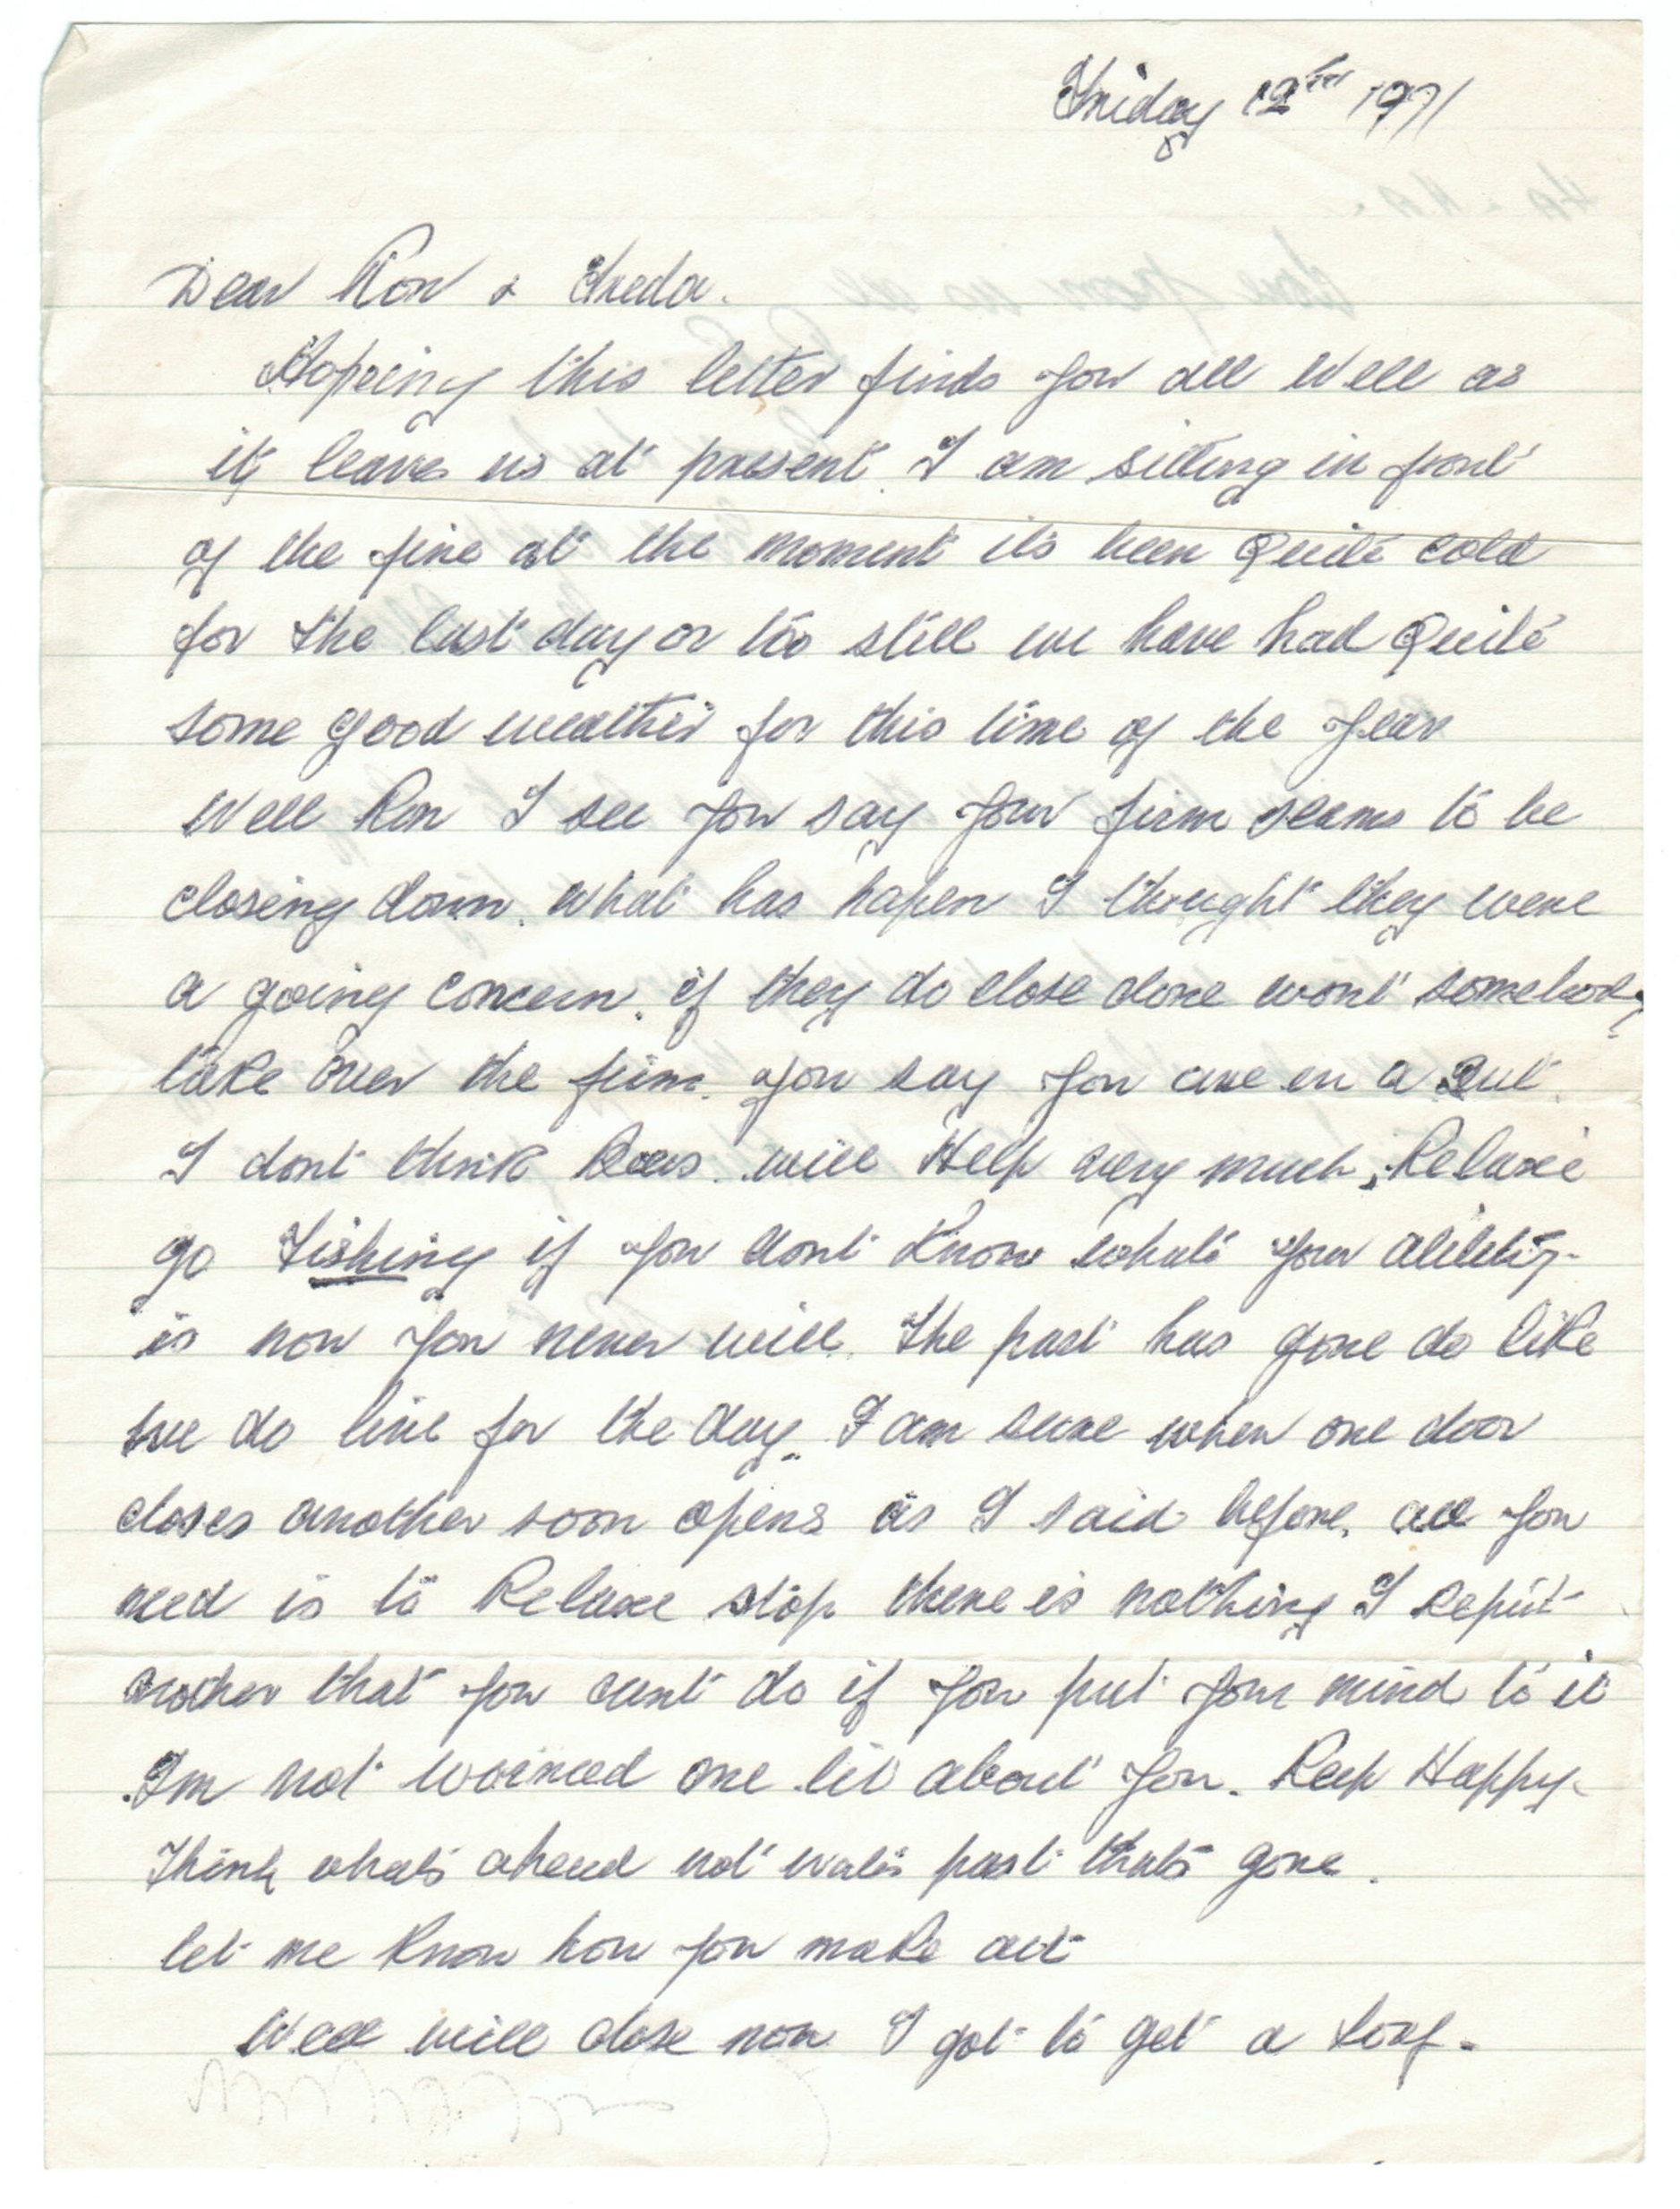 Friday 12th 1971
Dear Ron & Freda.
Hopeing this letter finds you all well as
it leaves us at present. I am sitting in front
of the fire at the moment its been Quite cold
for the last day or too still we have had Quite
some good weather for this time of the year
Well Ron I see you say your firm seams to be
closing down. what has hapen I thought they were
a going concern. if they do close done wont somebody
take over the firm. you say you are in a Rut.
I dont think will Help very much, Relaxe
go Fishing if you dont know whats your ability
is now you never will. The past has gone do like
we do live for the day. I am sure when one door
closes another soon opens as I said before. all you
need is to Relaxe stop there is nothing I
another that you cant do if you put your mind to it
Im not worried one bit about you. Keep Happy.
Think whats ahead not wats past thats gone.
let me know how you make out
Well will close now I got to get a loaf.
HA. HA.
love from us